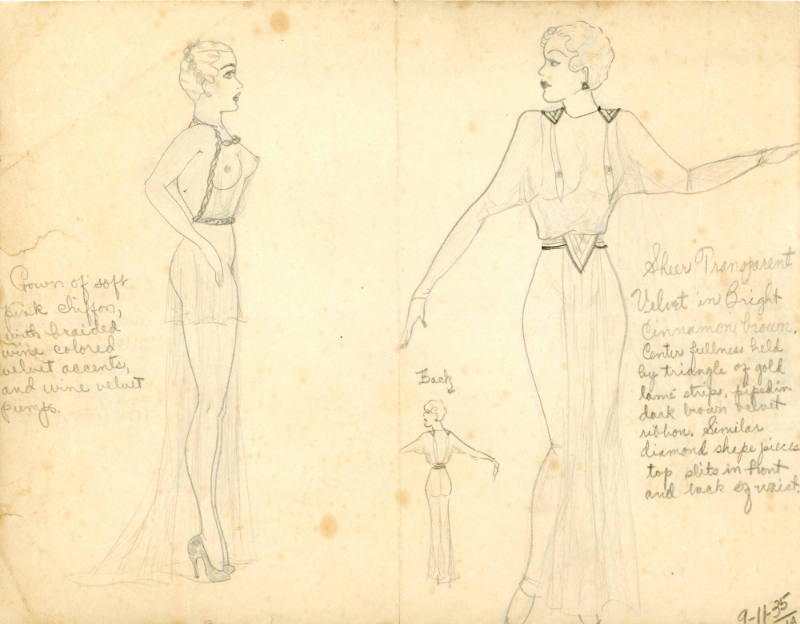 Gown of soft
pink chiffon,
with braided
wine colored
velvet accents,
and wine velvet
pumps.
Back
Sheer Transparent
Velvet in Bright
Cinnamon brown.
Center fullness held
by triangle of gold
lamé strips, piped in
dark brown velvet
ribbon. Similar
diamond shape pieces
top slits in front
and back of waist.
9-11-35